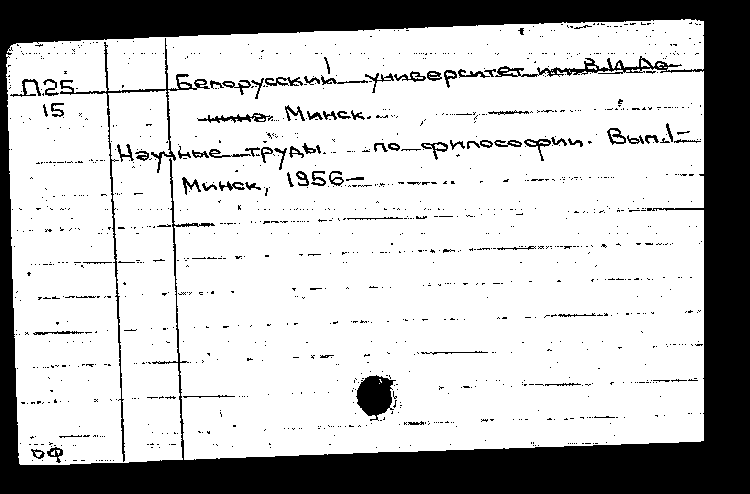 П25 Белорусский университет им. В.И. Ле-
15 нина. Минск.
Научные труды по философии. Вып. 1-
Минск, 1956-
оф